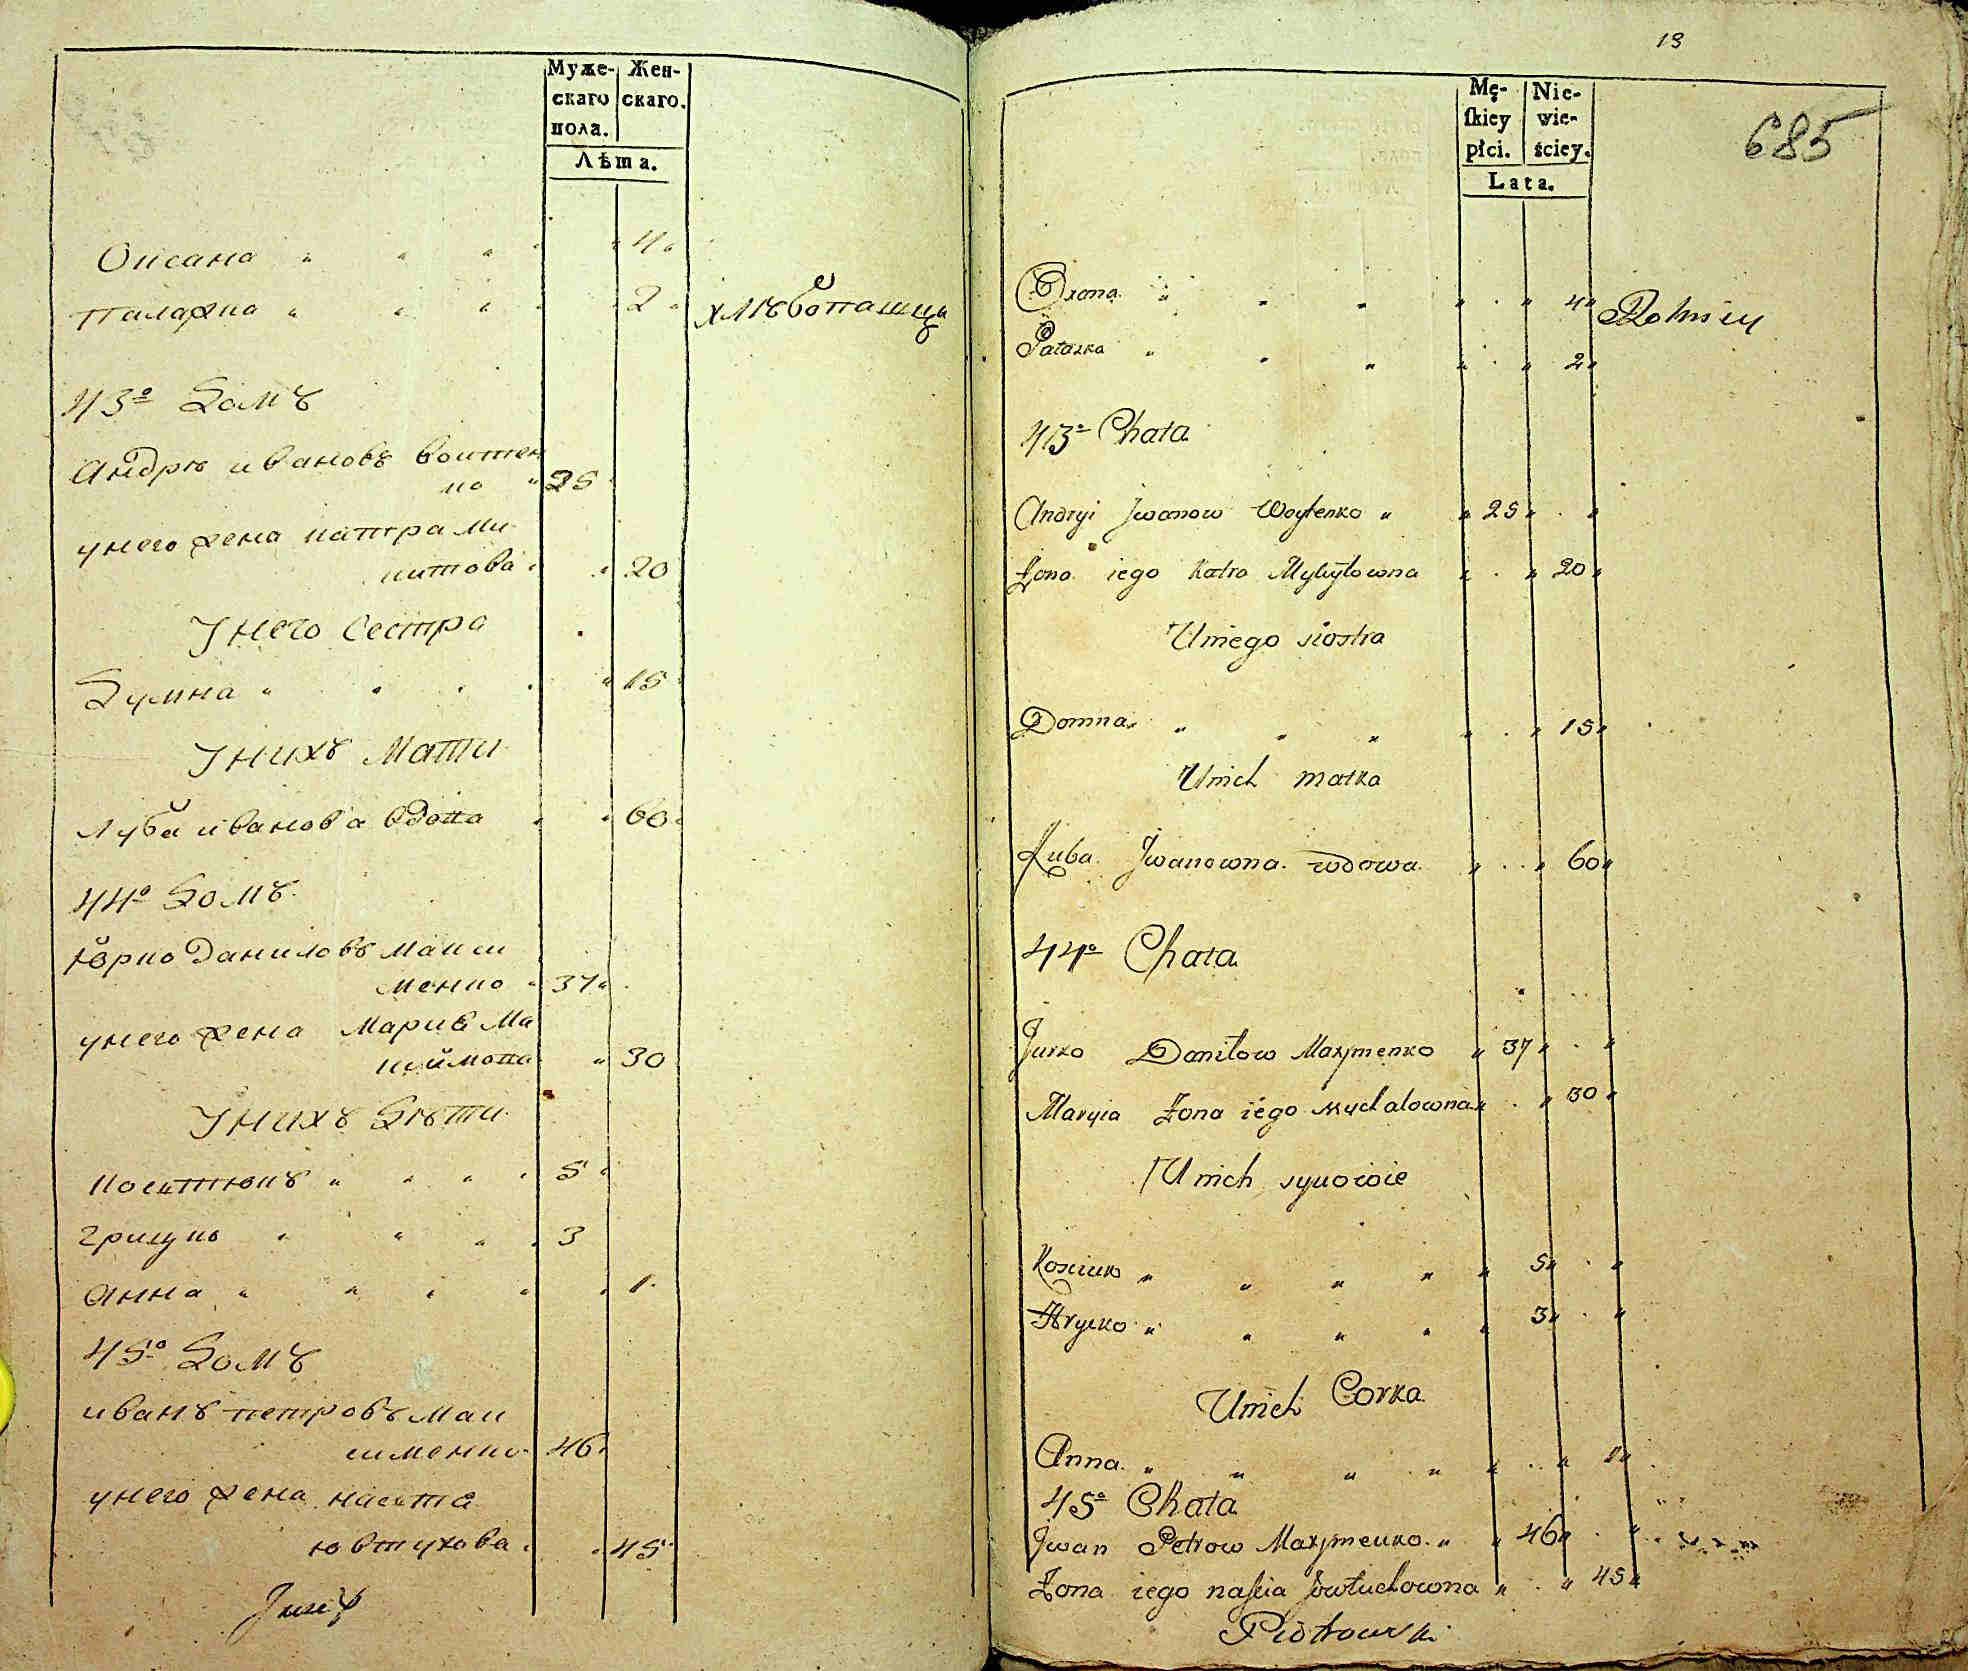 Муже- Жен-
скаго скаго.
пола.
Лѣта.
Оксана 4
Палажка 2 хлѣбопашцы
43º Домъ
Андрѣ ивановъ воитен
ко 25
унего жена катра Ми
китова 20
Унего Сестра
Думна 15
Унихъ Мати
Луба иванова вдова 60
44º Домъ
Юрко Даниловъ Макси
менко 37
унего жена Мария Ма
30
Унихъ Дѣти
Костюкъ 5
Грицко 3
Анна 1
45º Домъ
иванъ петровъ Мак
сименко 46
унего жена настя
ювтухова 45
Jusif
13
Mę- Nie-
ſkiey wie-
płci. ściey.
Lata.
685
Oxana 4 Rolnicy
Pałazka 2
43º Chata
Andryi Jwanow Woytenko 25
Zona iego Katra Mykytowna 20
Uniego siostra
Domna 15
Unich matka
Luba Jwanowna wdowa 60
44º Chata
Jurko Daniłow Maxymenko 37
Maryia Zona iego Mychalowna 30
Unich synowie
Kosciuk 5
Hrycko 3
Unich Corka
Anna 1
45º Chata
Jwan Petrow Maxymenko 46
Zona iego naſcia Jowtuchowna 45
Piotrowski